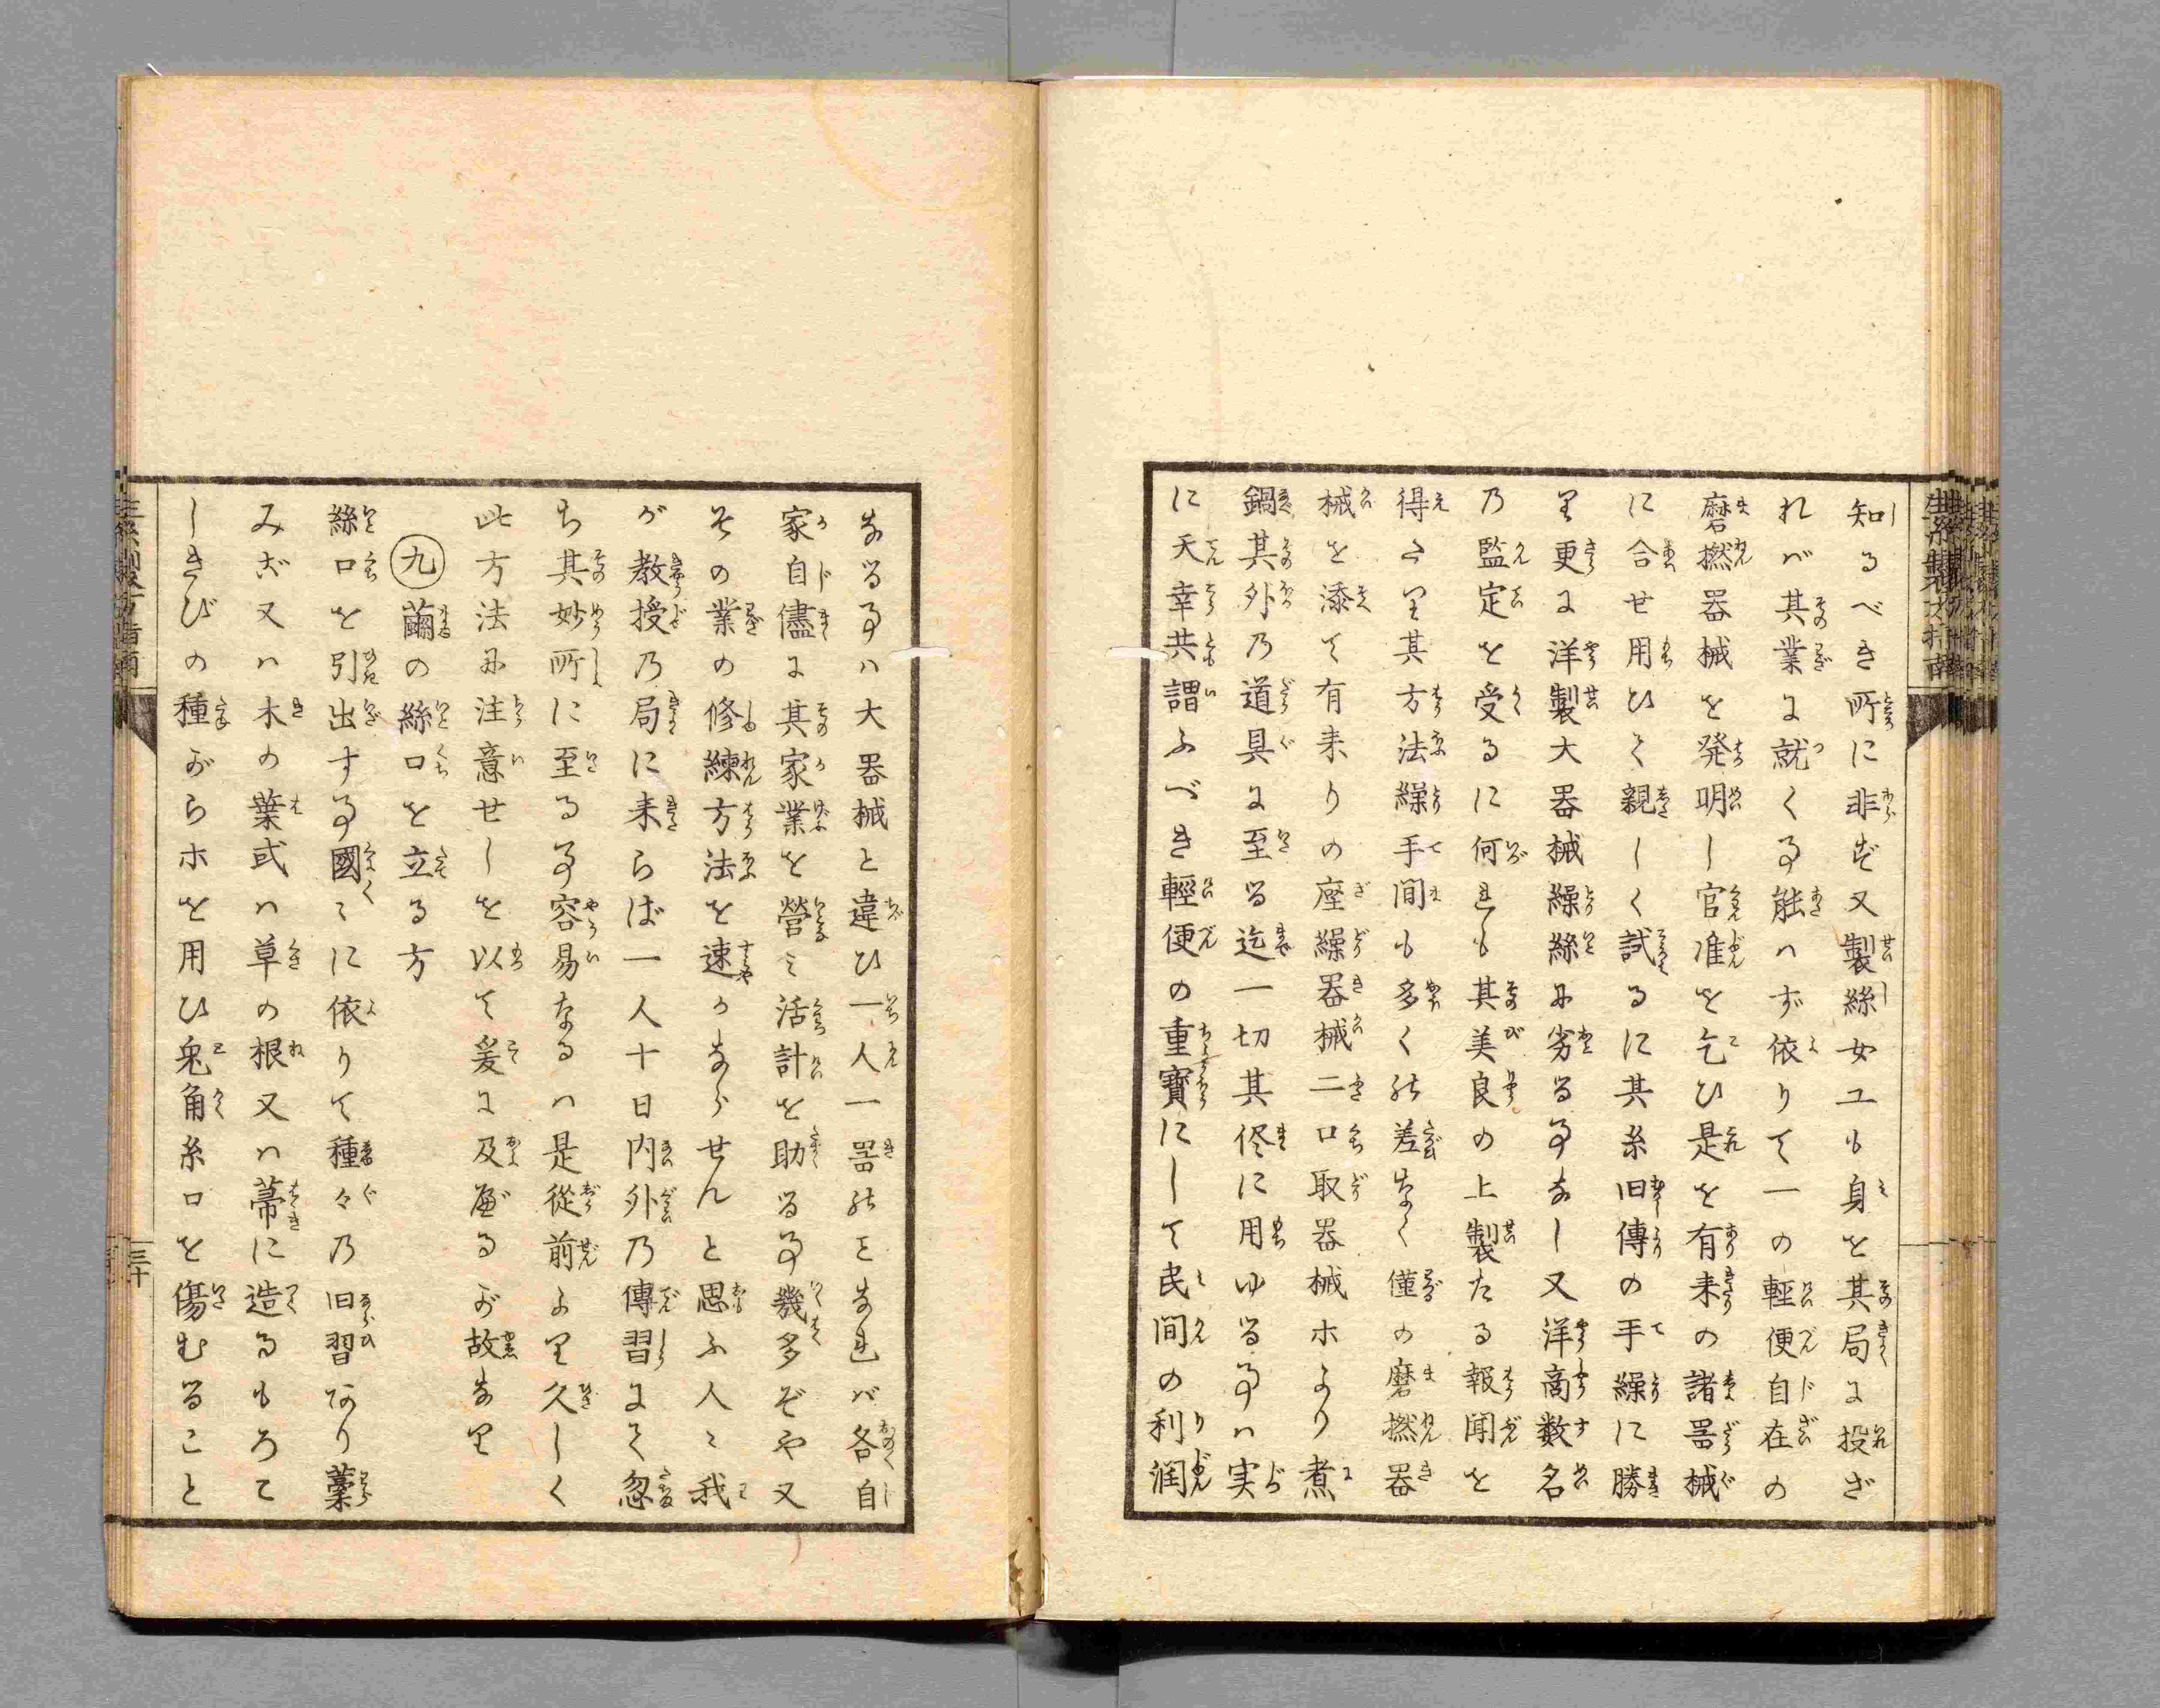 知るべき所に非ず又製絲女工も身を其局に投ざ
れバ其業に就く事能ハず依りて一の輕便自在の
磨撚器械を発明し官准を乞ひ是を有来の諸器械
に合せ用ひて親しく試るに其糸旧傳の手繰に勝
り更に洋製大器械繰絲に劣る事なし又洋商数名
乃監定を受るに何れも其美良の上製たる報聞を
得たり其方法繰手間も多くの差なく僅の磨撚器
械を添て有来りの座繰器械二口取器械ホより煮
鍋其外乃道具に至る迄一切其侭に用ゆる事ハ実
に天幸共謂ふべき輕便の重寳にして民間の利潤
なる事ハ大器械と違ひ一人一器のことなれバ各自
家自儘に其家業を營ミ活計を助る事幾多ぞや又
その業の修練方法を速かならせんと思ふ人ミ我
が教授乃局に来らば一人十日内外乃傳習にて忽
ち其妙所に至る事容易なるハ是從前より久しく
此方法に注意せしを以て爰に及べるが故なり
九 繭の絲口を立る方
絲口を引出す事國ミに依りて種々乃旧習あり藁
みご又ハ木の葉或ハ草の根又ハ蒂に造るもろこ
しきびの種がらホを用ひ兎角糸口を傷むること
生絲製方指南
三十